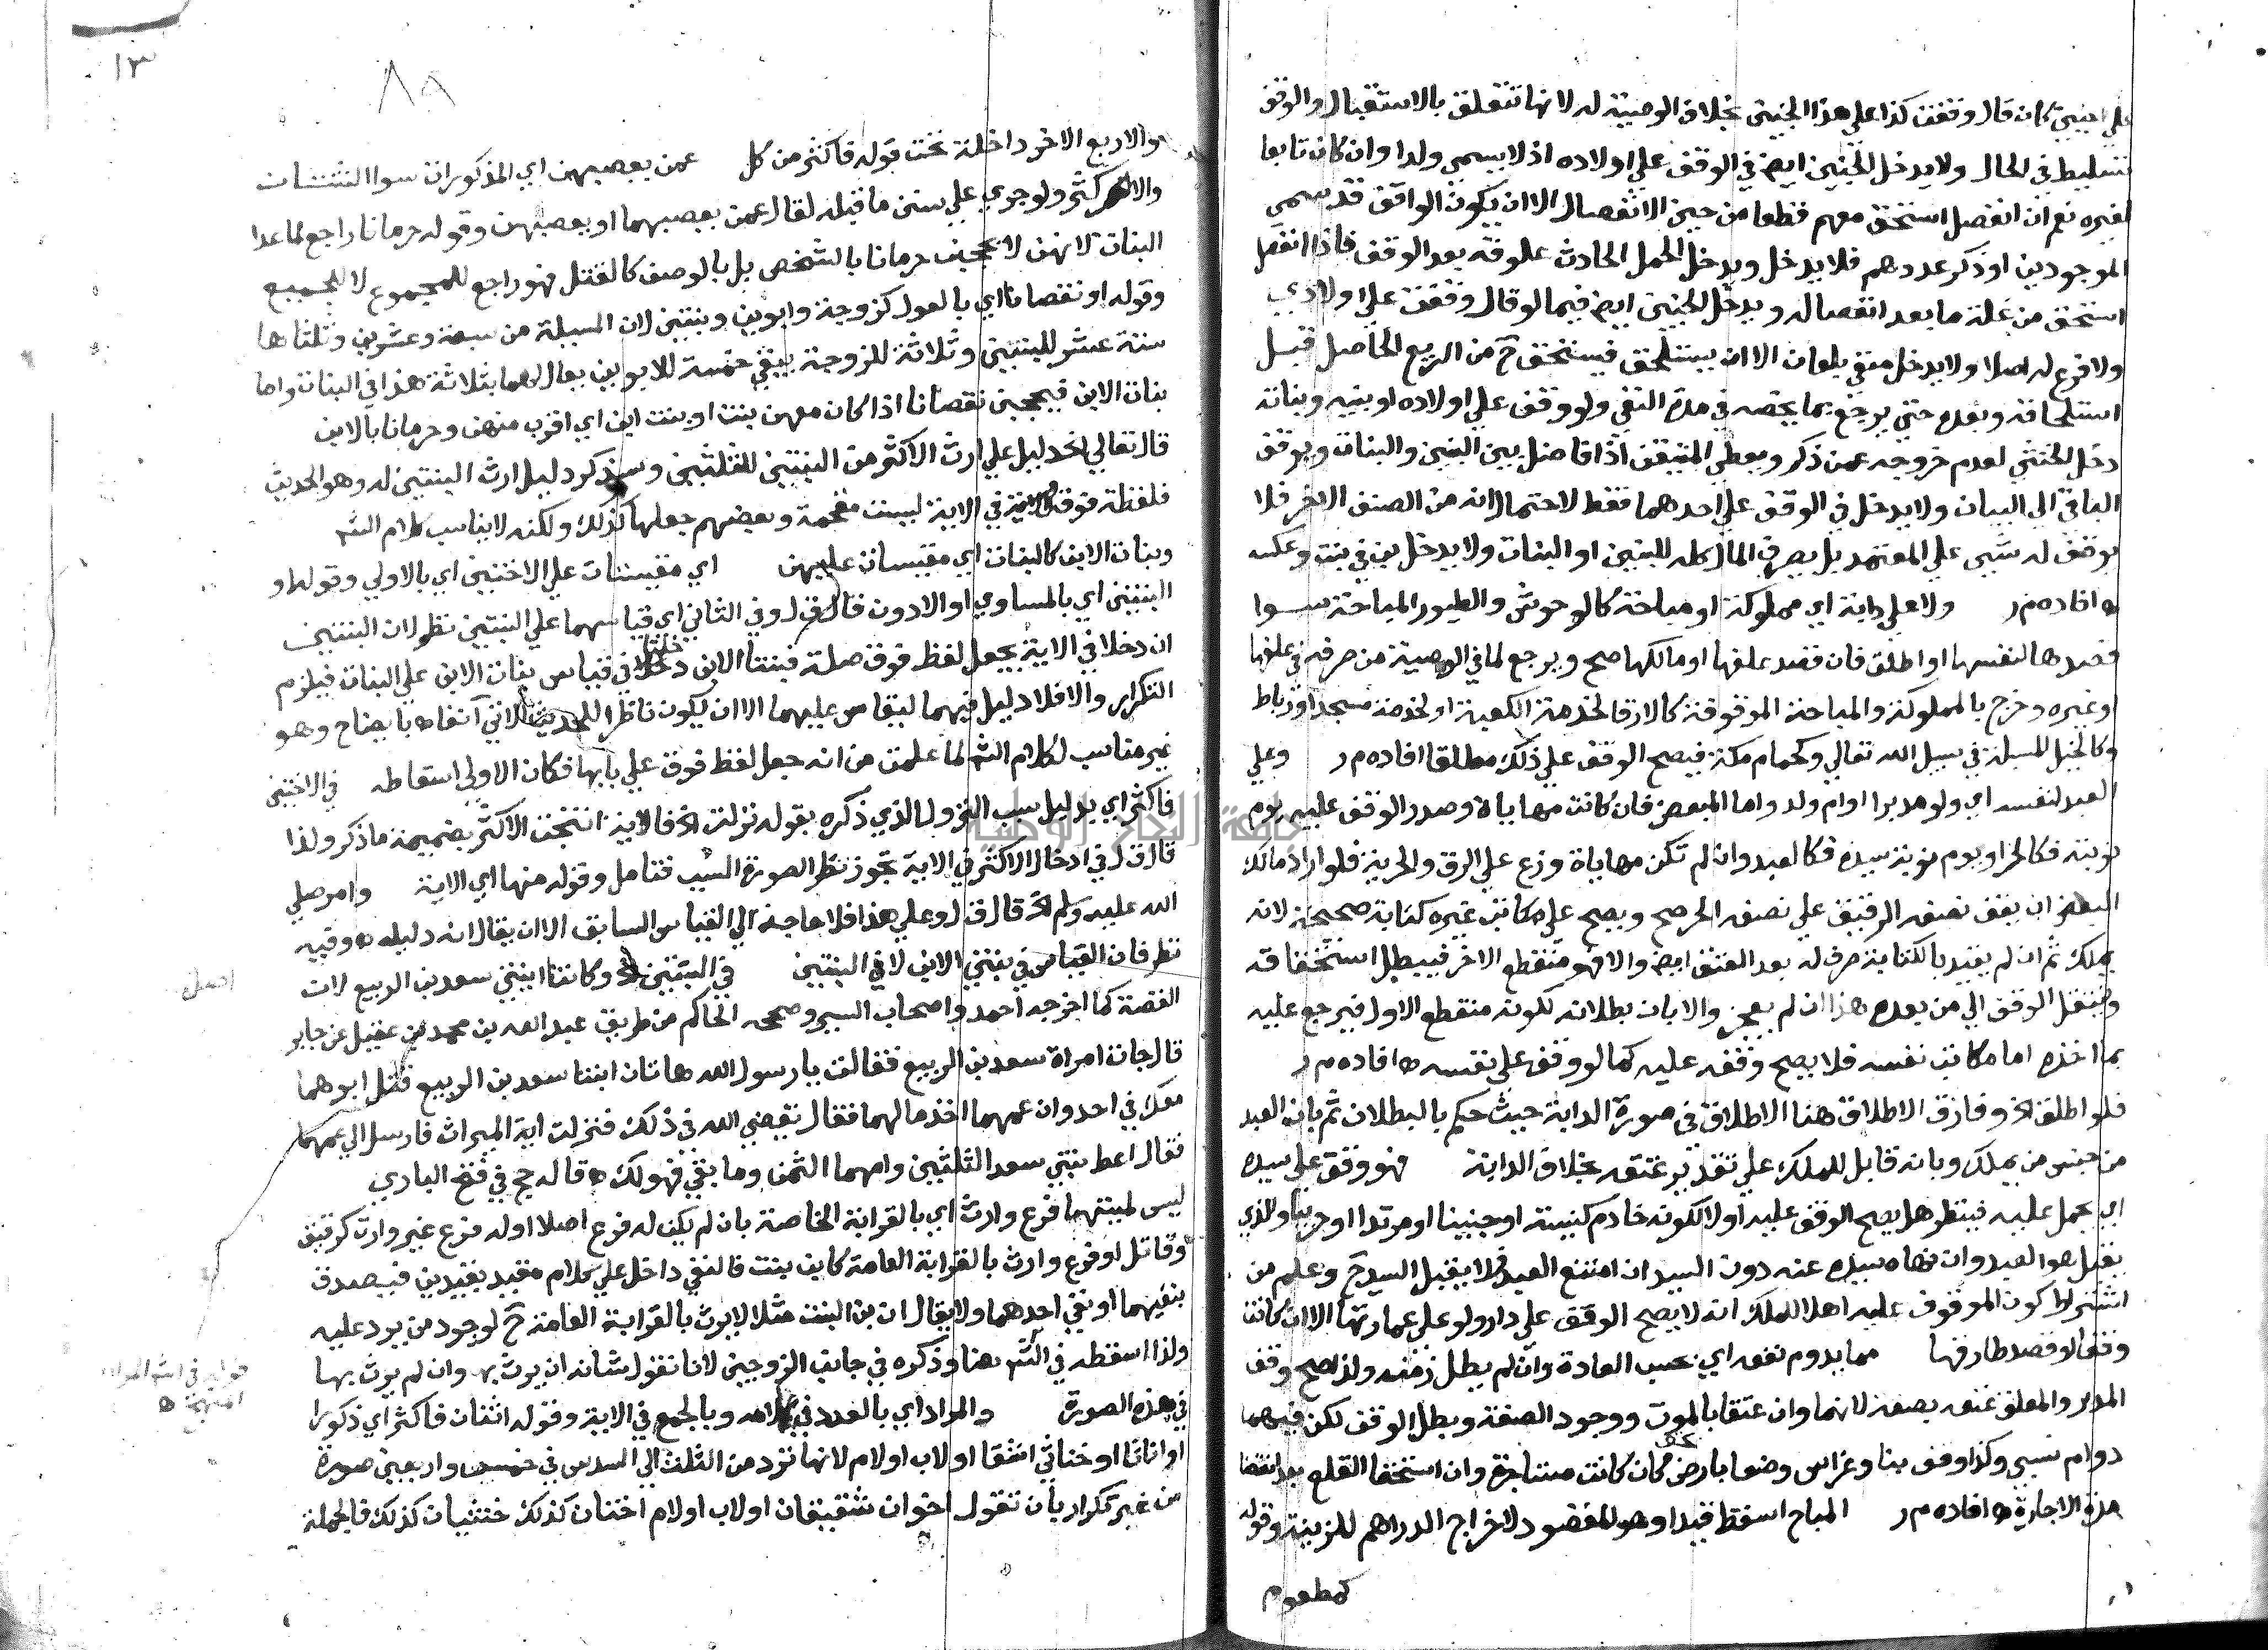 علي اجنبي كان قال وقفت كذا علي هذا الجنين بخلاف الوصية له لانها تتعلق بالاستقبال والوقف
تسليط في الحال ولا يدخل الجنين ايض في الوقف علي اولاده اذ لا يسمي ولدا وان كان تابعا
لغيره نعم ان انفصل استحق معهم قطعا من حين الانفصال الا ان يكون الواقف قد سمي
الموجودين او ذكر عددهم فلا يدخل ويدخل الحمل الحادث علوقه بعد الوقف فاذا انفصل
استحق من غلة ما بعد انفصاله ويدخل الجنين ايض فيما لو قال وقفت علي اولادي
ولا فرع له اصلا ولا يدخل منفي بلعان الا ان يستلحق فيستحق ح من الريع الحاصل قبل
استلحاقه وبعده حتي يرجع بما يخصه في مدة النفي ولو وقف علي اولاده او بنيه وبناته
دخل الخنثي لعدم خروجه عمن ذكر ويعطي المتيقن اذا فاضل بين البنين والبنات ويوقف
الباقي الي البيان ولا يدخل في الوقف علي احدهما فقط لاحتمال انه من الصنف الاخر فلا
يوقف له شيي علي المعتمد بل يصرف المال كله للبنين او البنات ولا يدخل بن في بنت وعكسه
ه افاده م ر ولا علي دابة اي مملوكة او مباحة كالوحوش والطيور المباحة سوا
قصدها لنفسها او اطلق فان قصد علفها او مالكها صح ويرجع لما في الوصية من صرفه في علفها
او غيره وخرج بالمملوكة والمباحة الموقوفة كالارقا لخدمة الكعبة او لخدمة مسجد او رباط
وكالخيل المسبلة في سبيل الله تعالي وكحمام مكة فيصح الوقف علي ذلك مطلقا افاده م ر وعلي
العبد لنفسه اي ولو مدبرا او ام ولد واما المبعض فان كانت مهاياة وصدر الوقف عليه يوم
نوبته فكالحر او يوم نوبة سيده فكالعبد وان لم تكن مهاياة وزع علي الرق والحرية فلو اراد مالك
البعض ان يقف نصفه الرقيق علي نصفه الحر صح ويصح علي مكاتب غيره كتابة صحيحة لانه
يملك ثم ان لم يقيد بالكتابة صرف له بعد العتق ايض والا فهو منقطع الاخر فيبطل استحقاقه
وينتقل الوقف الي من بعده هذا ان لم يعجز والا بان بطلانه لكونه منقطع الاول فيرجع عليه
بما اخذه اما مكاتب نفسه فلا يصح وقفه عليه كما لو وقف علي نفسه ه افاده م ر
فلو اطلق الخ وفارق الاطلاق هنا الاطلاق في صورة الدابة حيث حكم بالبطلان ثم بان العبد
من جنس من يملك وبانه قابل للملك علي تقدير عتقه بخلاف الدابة فهو وقف علي سيده
اي يحمل عليه فينظر هل يصح الوقف عليه اولا لكونه خادم كنيسة او جنينا او مرتدا او حربيا والذي
يقبل هو العبد وان نهاه سيده عنه دون السيد ان امتنع العبد فلا يقبل السيد ح وعلم من
اشتراط كون الموقوف عليه اهلا للملك انه لا يصح الوقف علي دار ولو علي عمارتها الا ان كانت
وقفا لو قصد طارقها مما يدوم نفعه اي بحسب العادة وان لم يطل زمنه ولذا صح وقف
المدبر والمعلق عتقه بصفة لانهما وان عتقا بالموت ووجود الصفة وبطل الوقف لكن فيهما
دوام نسبي وكذا وقف بنا وغراس وضعا بارض كان كانت مستاجرة وان استحقا القلع بعد انقضا
مدة الاجارة ه افاده م ر المباح اسقط قيدا وهو المقصود لاخراج الدراهم للزينة وقوله
كمطعوم
١٣
٨٩
والاربع الاخر داخلة تحت قوله فاكثر من كل عمن يعصبهن اي المذكورات سوا الثنتان
والاكثر ولو جري علي سنن ما قبله لقال عمن يعصبهما او يعصبهن وقوله حرمانا راجع لما عدا
البنات لانهن لا يحجبن حرمانا بالشخص بل بالوصف كالقتل فهو راجع للمجموع لا للجميع
وقوله او نقصانا اي بالعول كزوجة وابوين وبنتين لان المسئلة من سبعة وعشرين وثلثاها
ستة عشر للبنتين وثلاثة للزوجة يبقي خمسة للابوين يعال لهما بثلاثة هذا في البنات واما
بنات الابن فيحجبن نقصانا اذا كان معهن بنت او بنت ابن اي اقرب منهن وحرمانا بالابن
قال تعالي الخ دليل علي ارث الاكثر من البنتين للثلثين وسيذكر دليل ارث البنتين له وهو الحديث
فلفظة فوق في الاية ليست مقحمة وبعضهم جعلها كذلك ولكنه لا يناسب كلام الش
وبنات الابن كالبنات اي مقيسات عليهن اي مقيستان علي الاختين اي بالاولي وقوله او
البنتين اي بالمساوي او الادون قال ق ل وفي الثاني اي قياسهما علي البنتين نظر لان البنتين
ان دخلا في الاية بجعل لفظ فوق صلة فبنتا الابن دخلتا في قياس بنات الابن علي البنات فيلزم
التكرار والا فلا دليل فيهما ليقاس عليهما الا ان يكون ناظرا للحديث الاتي آنفا ه بايضاح وهو
غير مناسب لكلام الش لما علمت من انه جعل لفظ فوق علي بابها فكان الاولي اسقاطه في الاختين
فاكثر اي بدليل سبب النزول الذي ذكره بقوله نزلت الخ فالاية انتجت الاكثر بضميمة ما ذكر ولذا
قال ق ل في ادخال الاكثر في الاية تجوز نظر الصورة السبب فتامل وقوله منها اي الاية وامر صلي
الله عليه وسلم الخ قال ق ل وعلي هذا فلا حاجة الي القياس السابق الا ان يقال انه دليله ه وفيه
نظر فان القياس في بنتي الابن لا في البنتين في البنتين الخ وكانتا ابنتي سعد بن الربيع لان
القصة كما اخرجه احمد واصحاب السير وصححه الحاكم من طريق عبد الله بن محمد بن عقيل عن جابر
قال جات امراة سعد بن الربيع فقالت يا رسول الله هاتان ابنتا سعد بن الربيع قتل ابوهما
معك في احد وان عمهما اخذ مالهما فقال يقضي الله في ذلك فنزلت اية الميراث فارسل الي عمهما
فقال اعط بنتي سعد الثلثين وامهما الثمن وما بقي فهو لك ه قاله حج في فتح الباري
ليس لميتهما فرع وارث اي بالقرابة الخاصة بان لم يكن له فرع اصلا اوله فرع غير وارث كرقيق
وقاتل او فرع وارث بالقرابة العامة كابن بنت فالنفي داخل علي كلام مقيد بقيدين فيصدق
بنفيهما او نفي احدهما ولا يقال ان بن البنت مثلا لا يرث بالقرابة العامة ح لوجود من يرد عليه
ولذا اسقطه في الش هنا وذكره في جانب الزوجين لانا نقول شانه ان يرث بها وان لم يرث بها
في هذه الصورة والمراد اي بالعدد في كلامه وبالجمع في الاية وقوله اثنان فاكثر اي ذكورا
او اناثا او خناثي اشقا او لاب او لام لانها ترد من الثلث الي السدس في خمس واربعين صورة
من غير تكرار بان تقول اخوان شقيقان او لاب او لام اختان كذلك خنثيان كذلك فالجملة